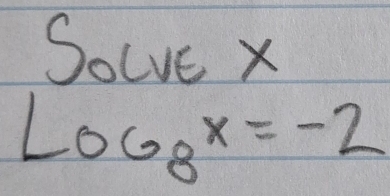 SOLVE X
LOG₈ x = -2